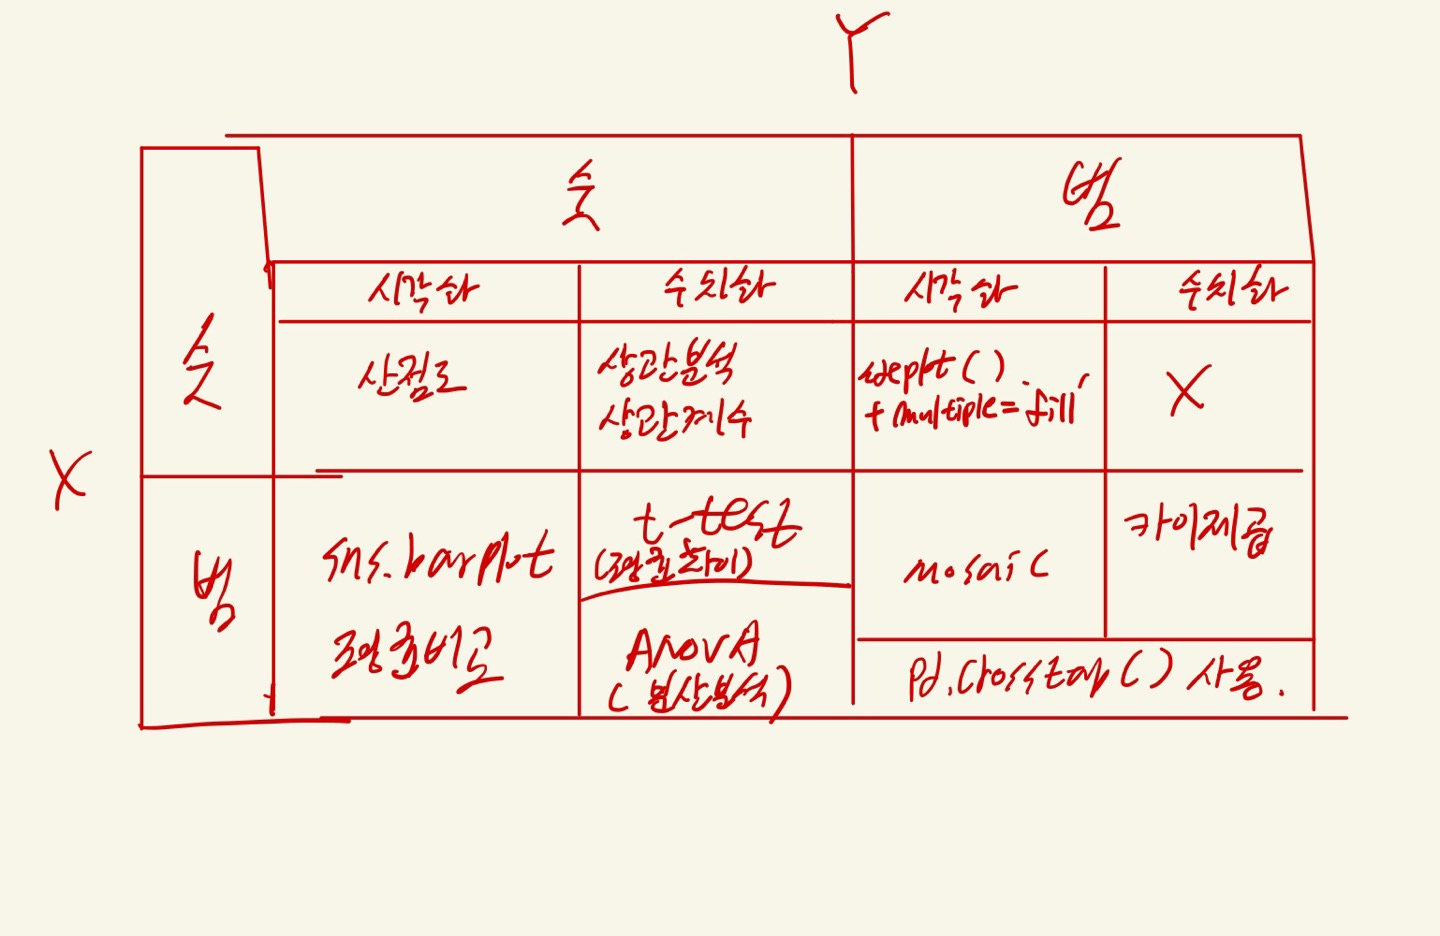 Y
숫
범
시각화
수치화
시각화
수치화
숫
산점도
상관분석
상관계수
kdeplot()
+ multiple='fill'
X
X
범
sns.barplot
평균비교
t-test
(평균차이)
ANOVA
(분산분석)
mosaic
카이제곱
pd.crosstab() 사용.